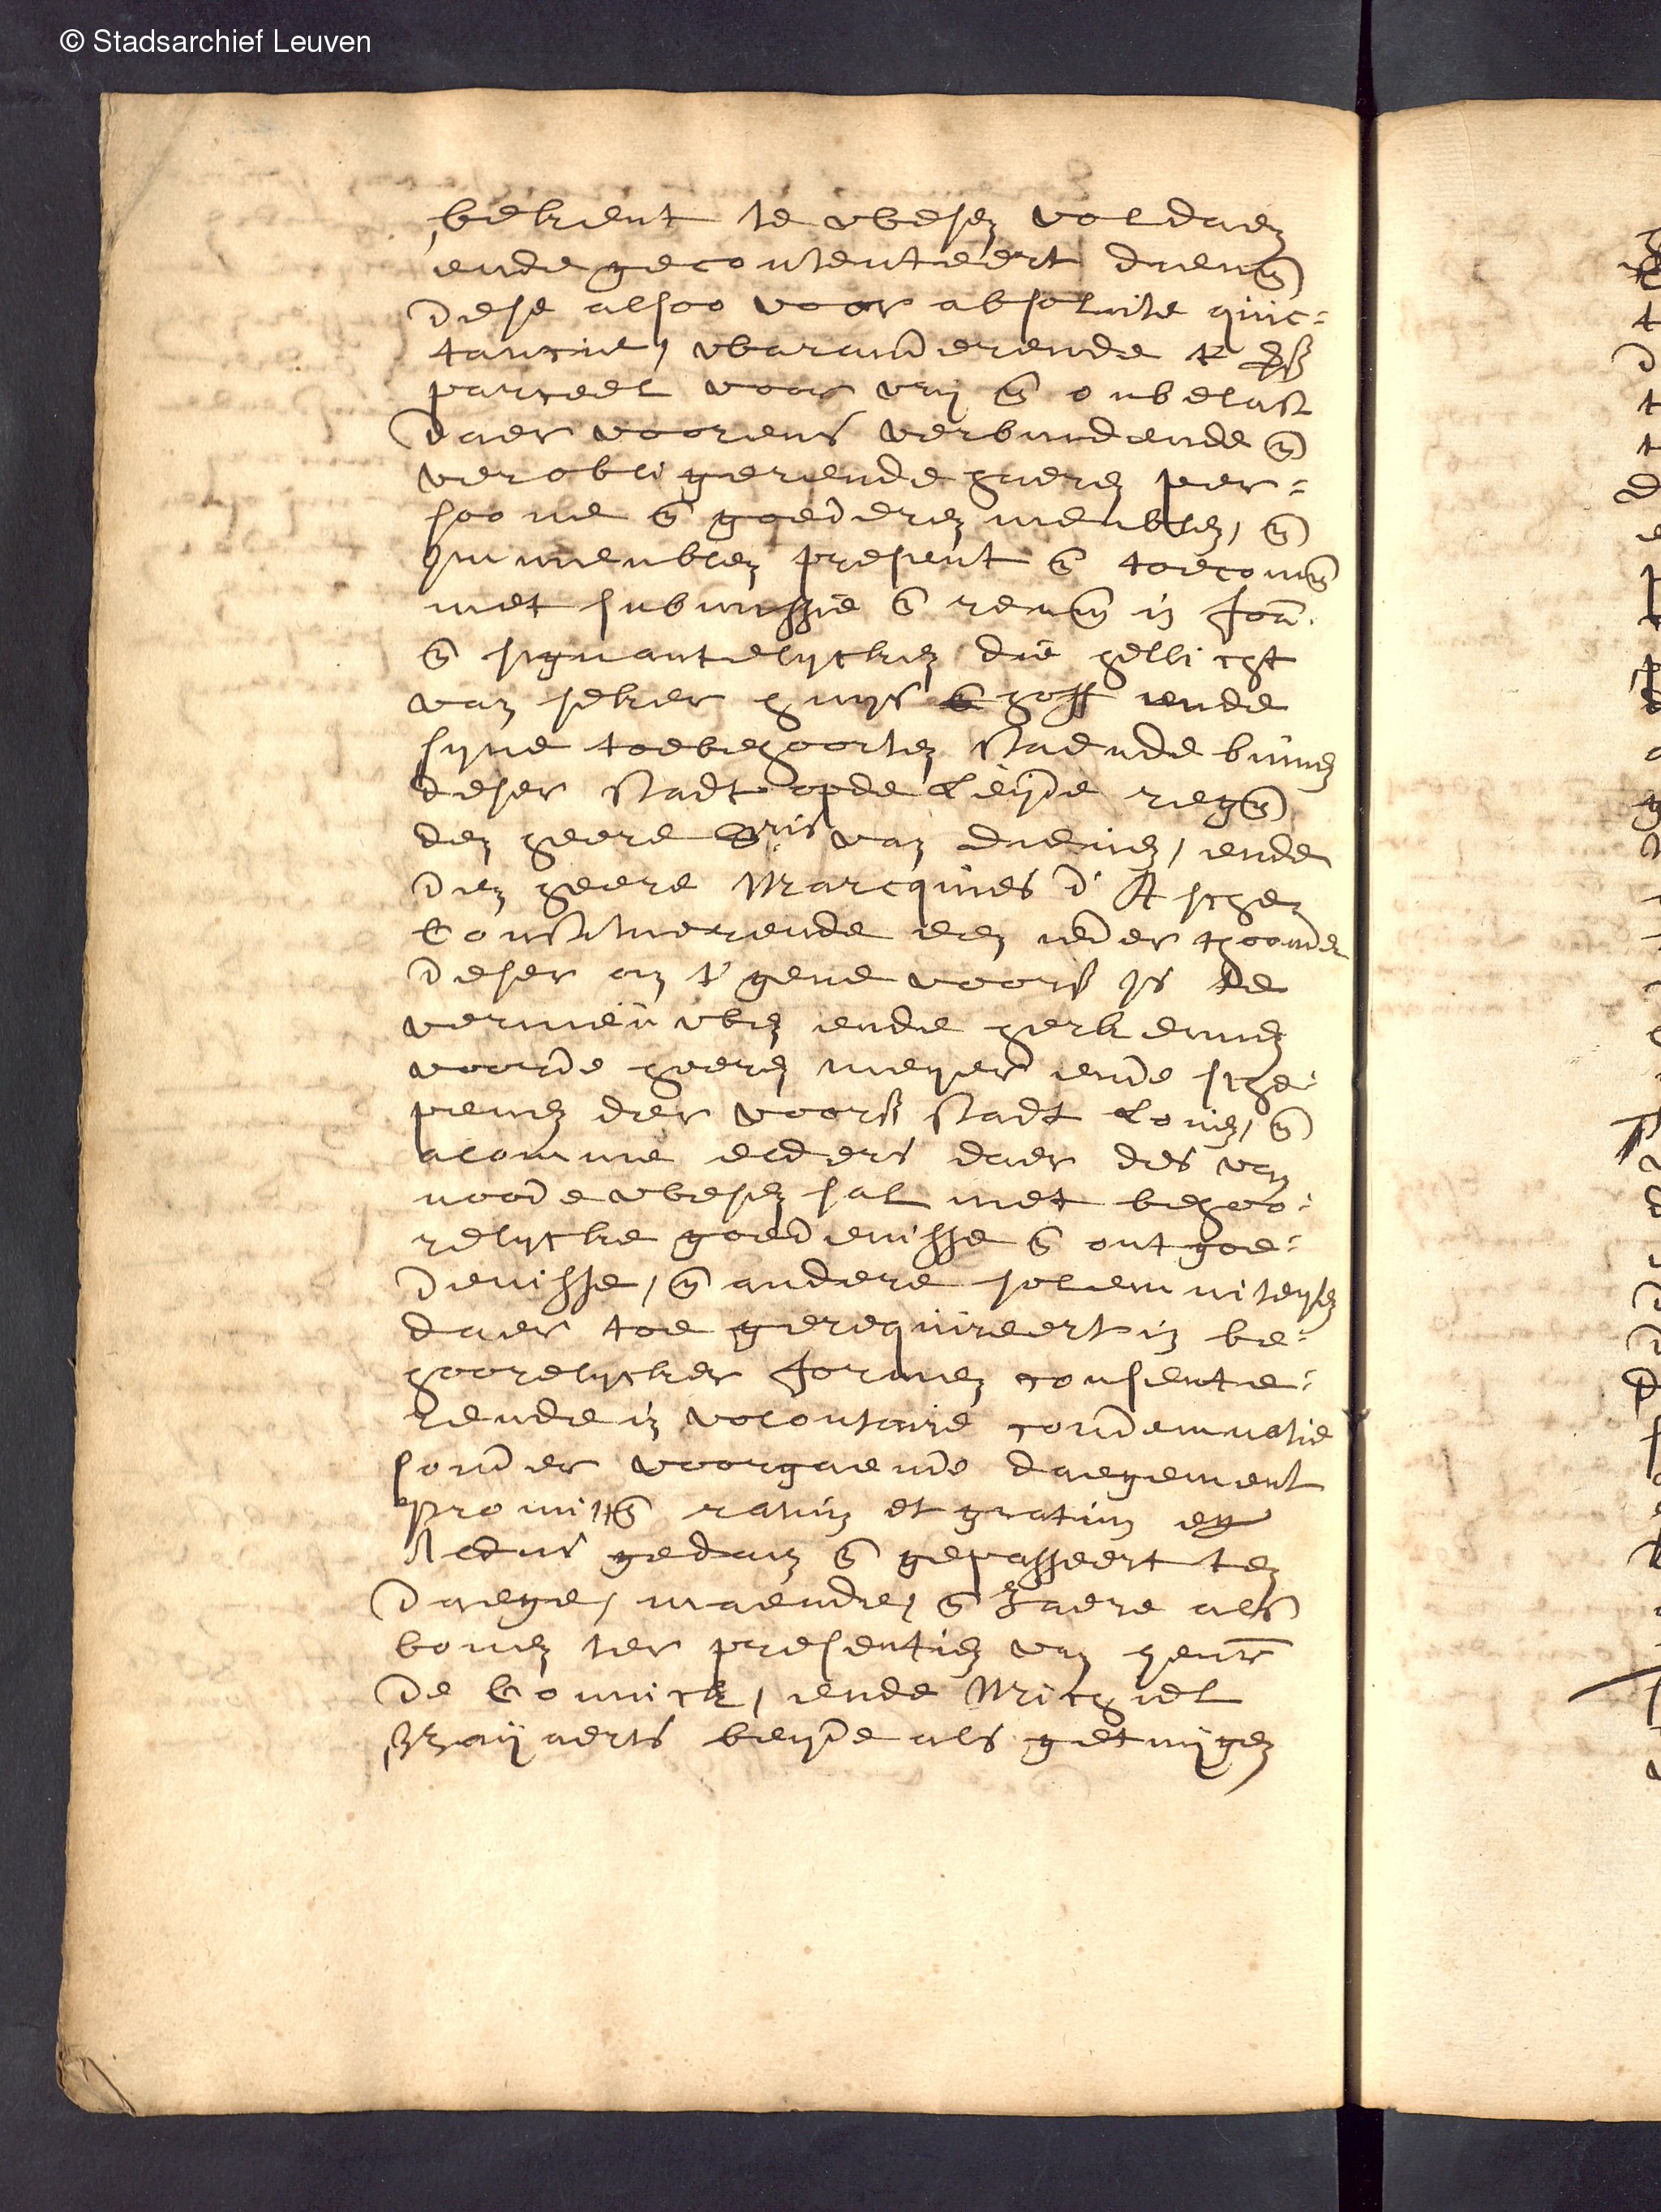 © Stadsarchief Leuven
bekent te wesen voldaen
ende gecontenteert daer
dese alsoo voor absolute quic=
tancie, waranderende t
parceel voor vry en onbelast
daer voorens verbindende en
verobligerende haere per=
soone en goederen meublen, en
immeublen present en toecom
met submissie en ren in forma
en signantelycken die hellicht
van seker huys en hoff ende
syne toebehoorten staende binnen
deser stadt opde Leye regen
den heere van ende
den heere Marcquies d' Asschen
Constituerende een ieder thoonder
deser om t' gene voors is te
vernieuwen ende herkennen
voorde heeren meyer ende sche=
penen der voors stadt Loven, en
alomme elders daer des van
noode wesen sal met behoo=
relycke goedenisse en ontgoe=
denisse, en andere solemniteyten
daer toe gerequireert in be=
hoorelycker formen consente=
rende in volontaire condemnatie
sonder voorgaende daegement
promittens ratum et gratum
Actus gedaen en gepasseert ten
daege, maende, en Jaere als
boven ter presentien van henr
de Connick, ende Michiel
beyde als getuygen